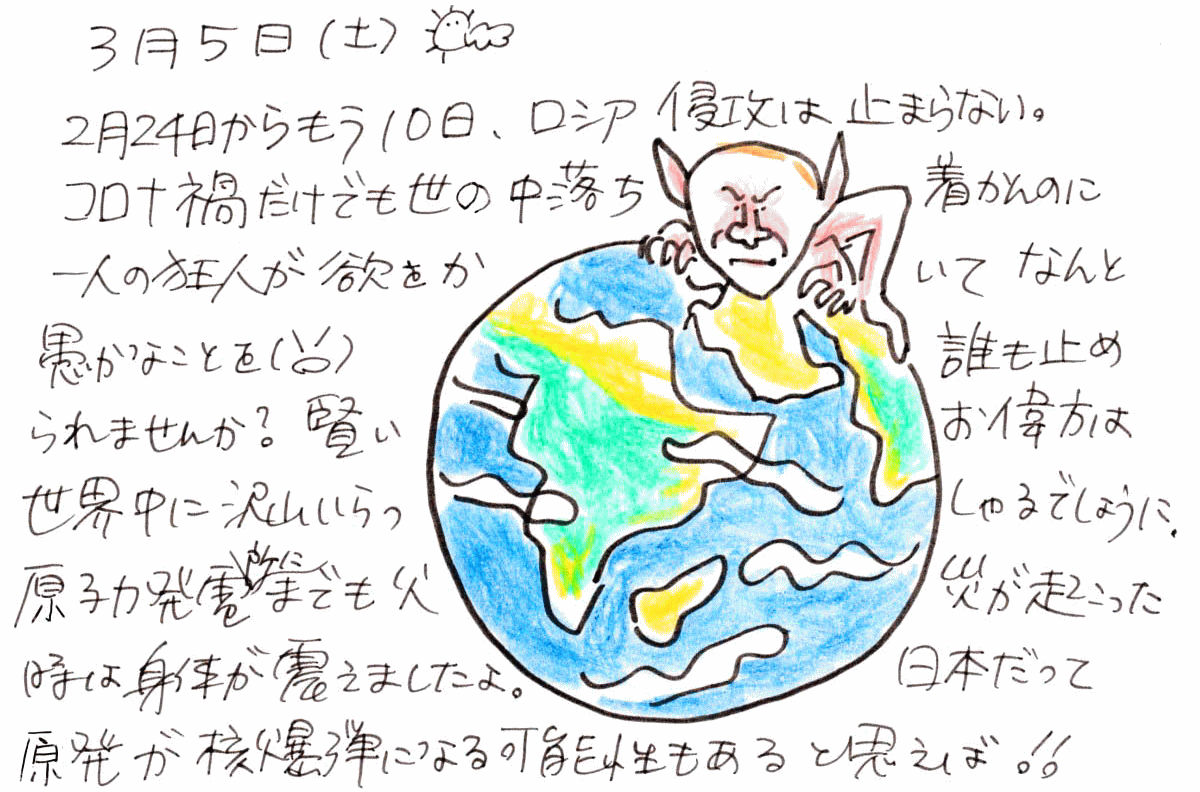 3月5日(土)
2月24日からもう10日、ロシア侵攻は止まらない。
コロナ禍だけでも世の中落ち着かんのに
一人の狂人が欲をかいてなんと
愚かなことを(怒)誰も止め
られませんか?賢いお偉方は
世界中に沢山いらっしゃるでしょうに、
原子力発電所にまでも火災が起こった
時は身体が震えましたよ。日本だって
原発が核爆弾になる可能性もあると思えば!!